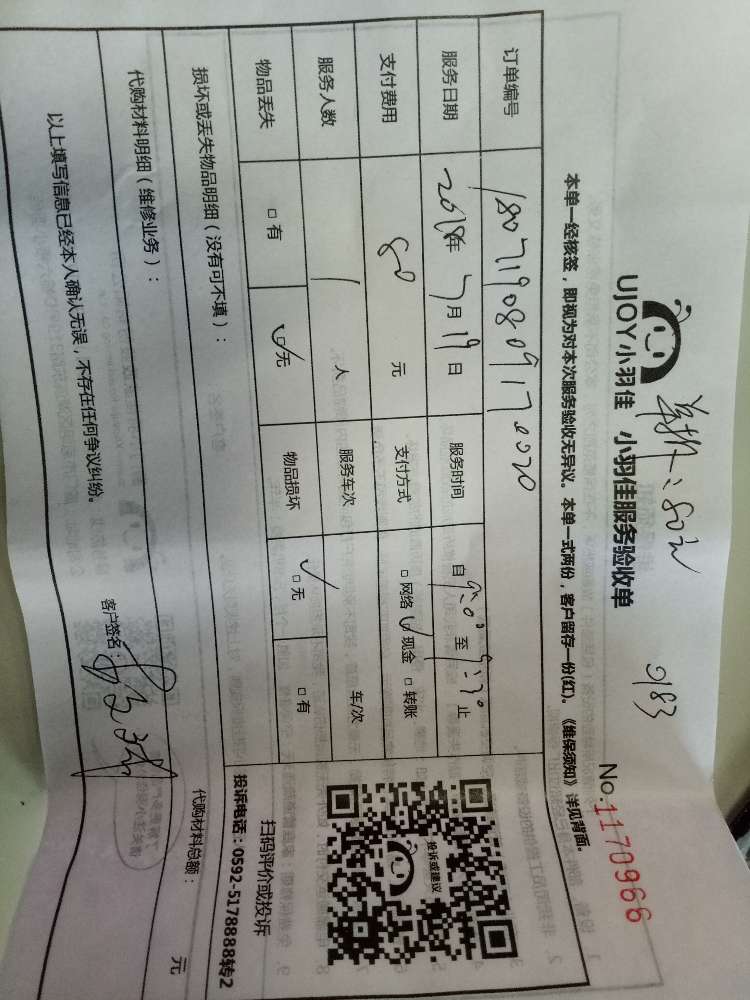 单拆：80元
983
UJOY小羽佳 小羽佳服务验收单
No:1170966
本单一经核签，即视为对本次服务验收无异议。本单一式两份，客户留存一份(红)。《维保须知》详见背面。
订单编号 180719080917020
服务日期 2018年7月19日 服务时间 自9:00至9:30止
支付费用 80 元 支付方式 □网络 ☑现金 □转账
服务人数 1 人 服务车次 车/次
物品丢失 □有 ☑无 物品损坏 ☑无 □有
投诉或建议
扫码评价或投诉
投诉电话：0592-5178888转2
损坏或丢失物品明细（没有可不填）：
代购材料明细（维修业务）： 代购材料总额： 元
以上填写信息已经本人确认无误，不存在任何争议纠纷。 客户签名：